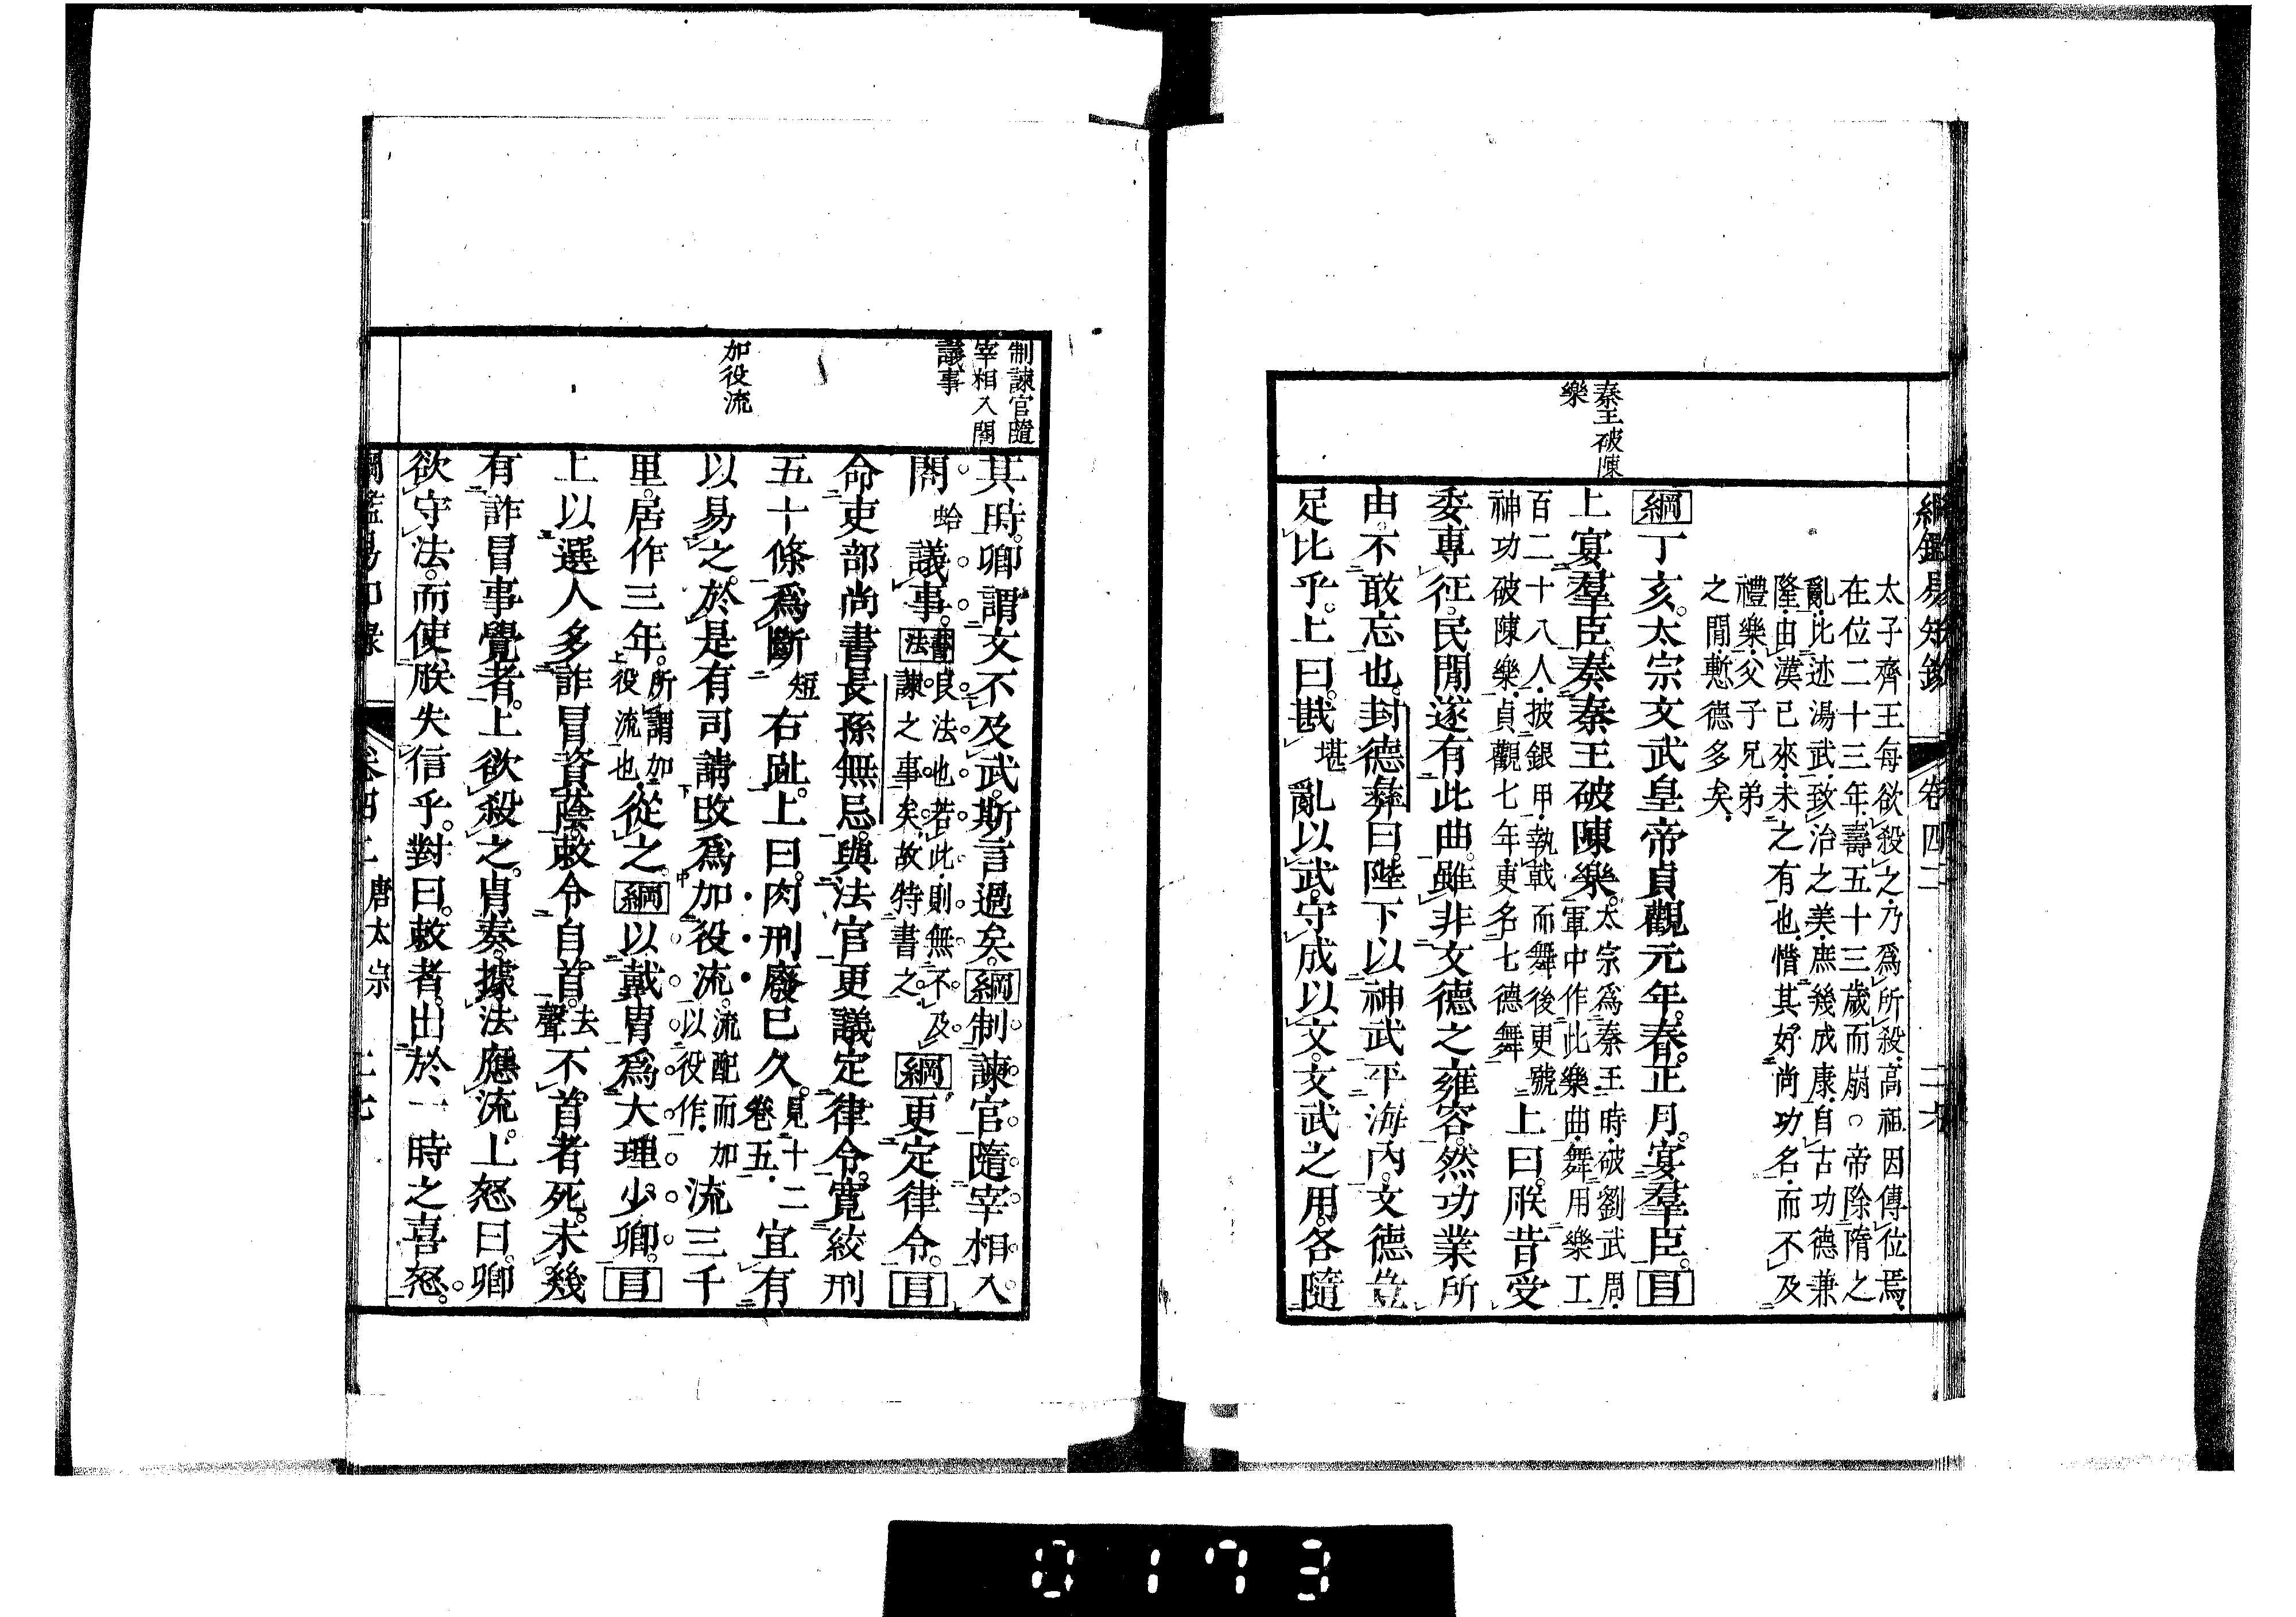 綱鑑易知錄 卷四二 二六
秦王破陳
樂
太子齊王每欲殺之乃爲所殺高祖因傳位焉
在位二十三年壽五十三歲而崩○帝除隋之
亂比迹湯武致治之美庶幾成康自古功德兼
隆由漢已來未之有也惜其好尚功名而不及
禮樂父子兄弟
之閒慙德多矣
綱丁亥太宗文武皇帝貞觀元年春正月宴羣臣目
上宴羣臣奏秦王破陳樂太宗爲秦王時破劉武周
軍中作此樂曲舞用樂工
百二十八人披銀甲執戟而舞後更號
神功破陳樂貞觀七年更名七德舞上曰朕昔受
委專征民閒遂有此曲雖非文德之雍容然功業所
由不敢忘也封德彝曰陛下以神武平海內文德豈
足比乎上曰戡堪亂以武守成以文文武之用各隨
制諫官隨
宰相入閤
議事
加役流
其時卿謂文不及武斯言過矣綱制諫官隨宰相入
閤蛤議事書法良法也若此則無不及
諫之事矣故特書之綱更定律令目
命吏部尚書長孫無忌與法官更議定律令寬絞刑
五十條爲斷短右趾上曰肉刑廢已久見十二
卷五宜有
以易之於是有司請改爲加役流流配而加
以役作流三千
里居作三年所謂加
役流也從之綱以戴胄爲大理少卿目
上以選人多詐冒資蔭敕令自首去
聲不首者死未幾
有詐冒事覺者上欲殺之胄奏據法應流上怒曰卿
欲守法而使朕失信乎對曰敕者出於一時之喜怒
綱鑑易知錄 卷四二 唐太宗 二七
0173